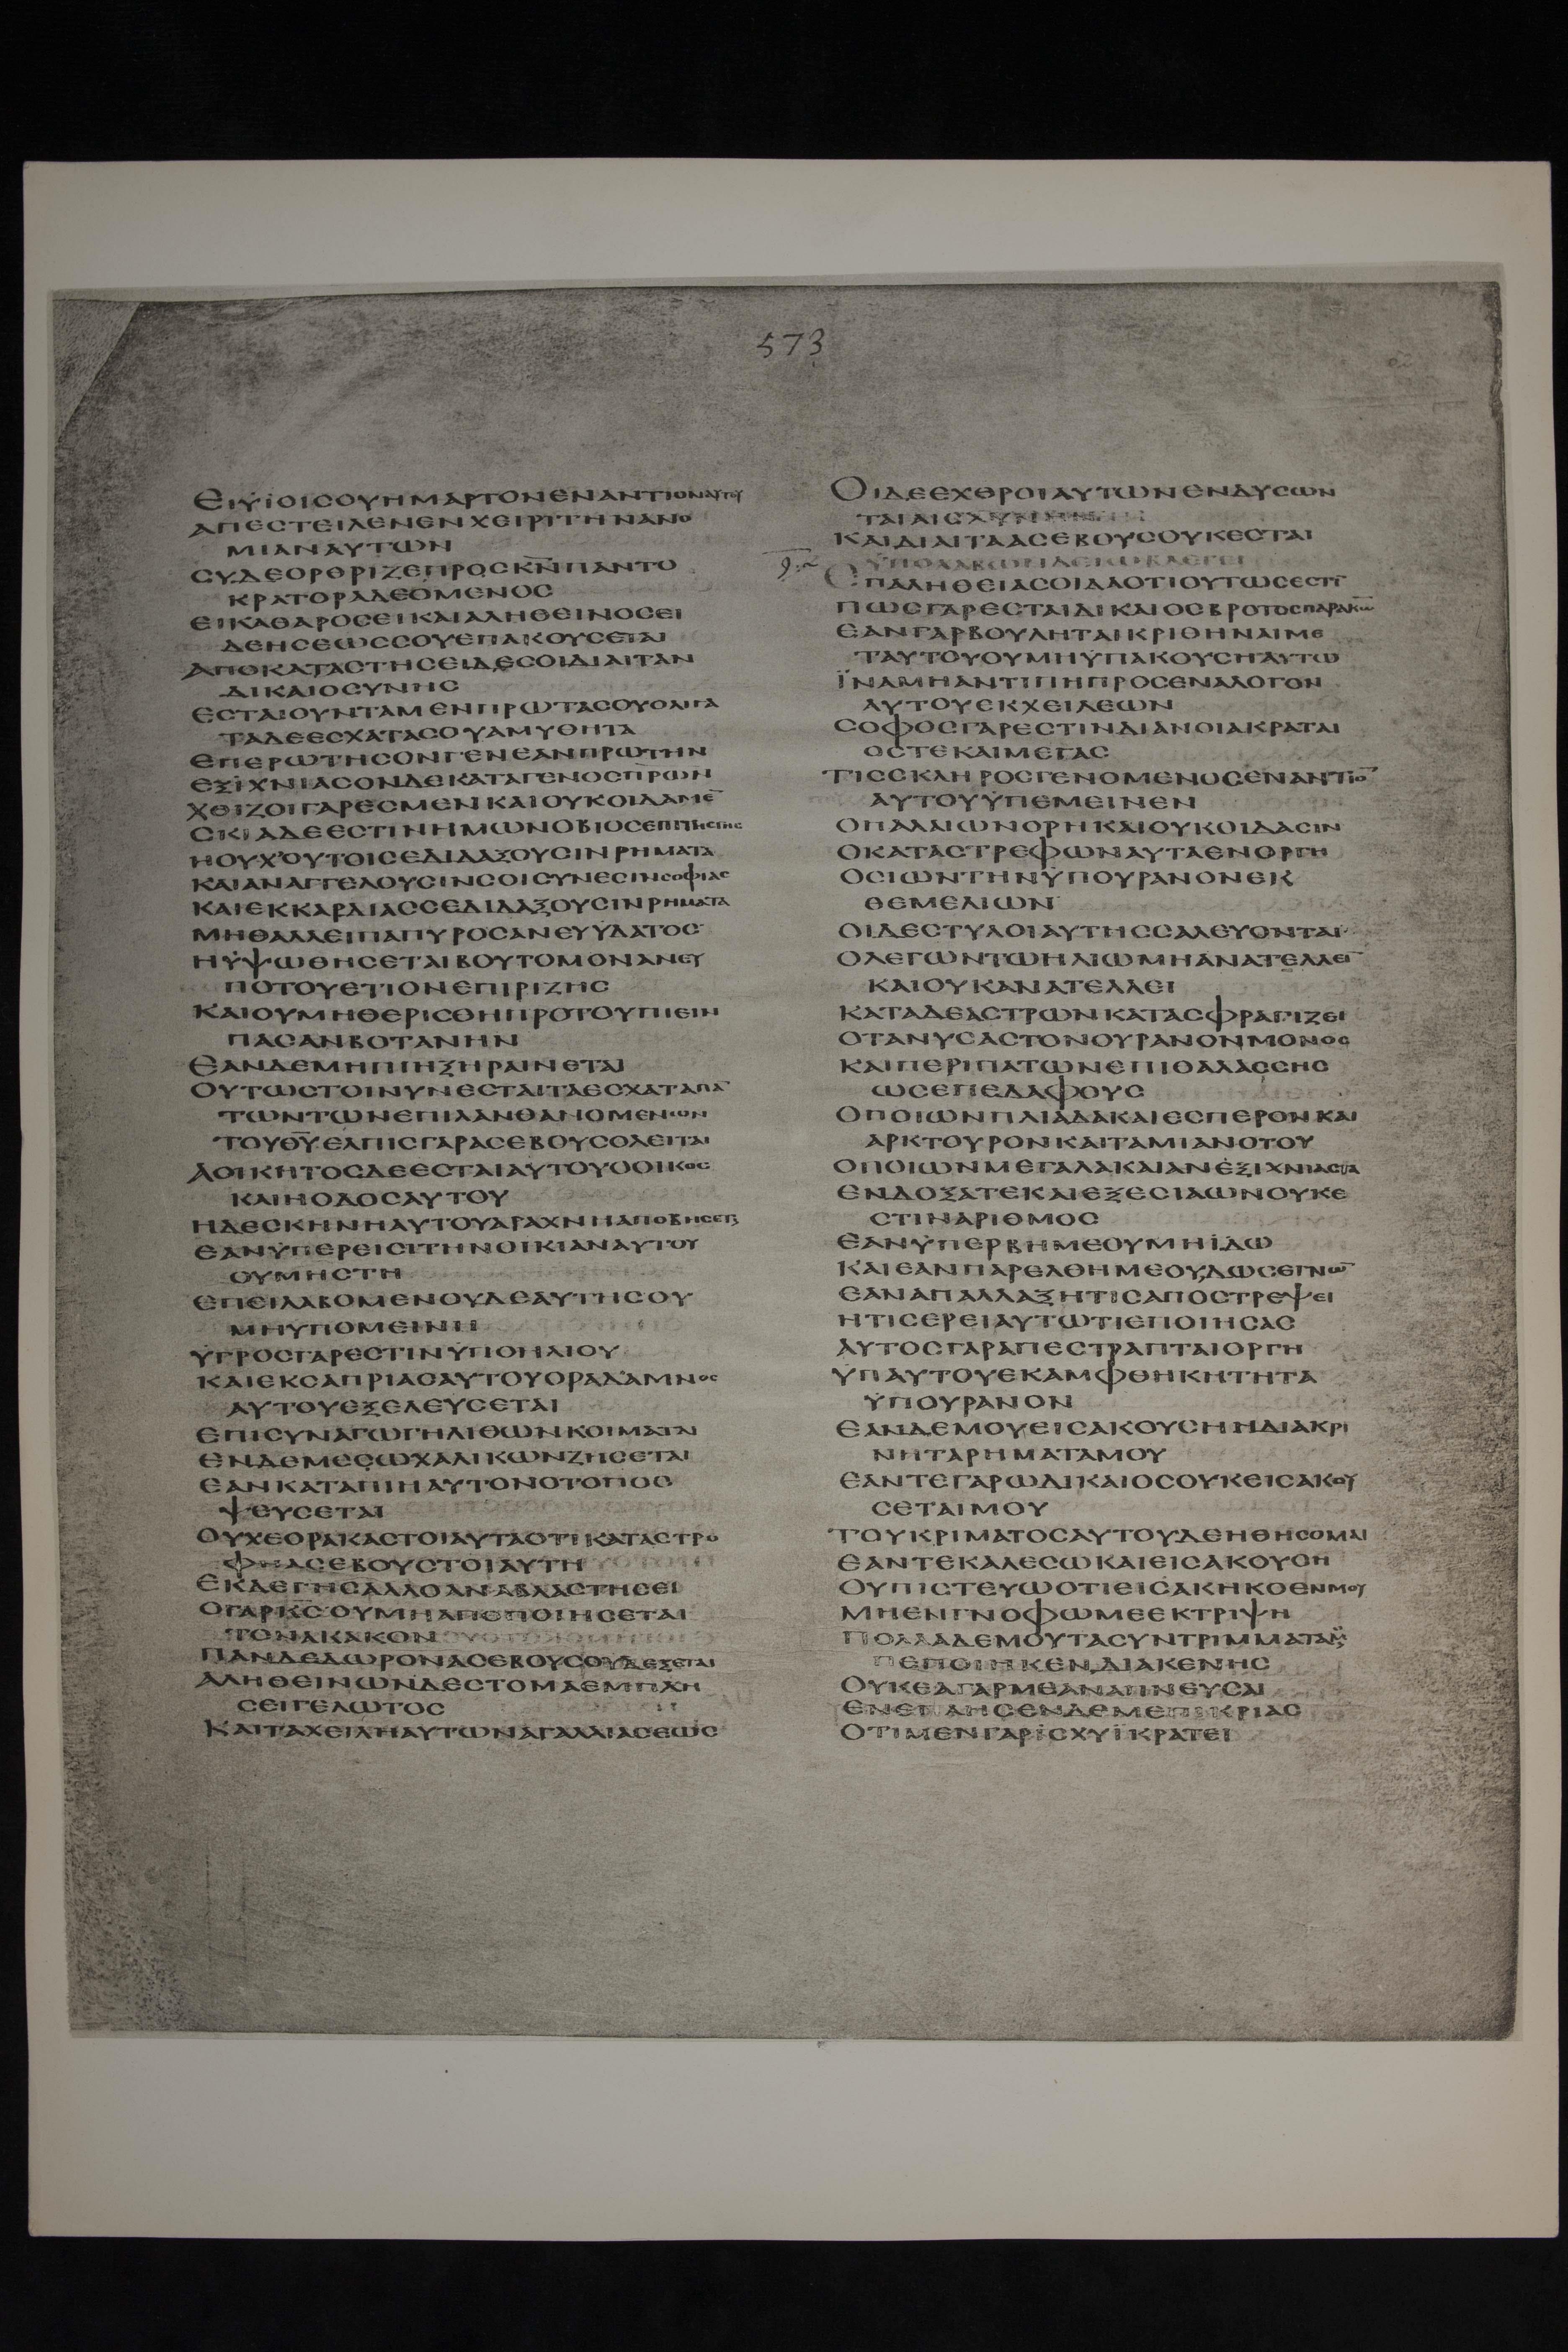 573
ΕΙΫΙΟΙCΟΥΗΜΑΡΤΟΝΕΝΑΝΤΙΟΝΑΥΤΟΥ
ΑΠΕCΤΕΙΛΕΝΕΝΧΕΙΡΙΤΗΝΑΝΟ
ΜΙΑΝΑΥΤΩΝ
CΥΔΕΟΡΘΡΙΖΕΠΡΟCΚΝ̅ΠΑΝΤΟ
ΚΡΑΤΟΡΑΔΕΟΜΕΝΟC
ΕΙΚΑΘΑΡΟCΕΙΚΑΙΑΛΗΘΕΙΝΟCΕΙ
ΔΕΗCΕΩCCΟΥΕΠΑΚΟΥCΕΤΑΙ
ΑΠΟΚΑΤΑCΤΗCΕΙΔΕCΟΙΔΙΑΙΤΑΝ
ΔΙΚΑΙΟCΥΝΗC
ΕCΤΑΙΟΥΝΤΑΜΕΝΠΡΩΤΑCΟΥΟΛΙΓΑ
ΤΑΔΕΕCΧΑΤΑCΟΥΑΜΥΘΗΤΑ
ΕΠΕΡΩΤΗCΟΝΓΕΝΕΑΝΠΡΩΤΗΝ
ΕΞΙΧΝΙΑCΟΝΔΕΚΑΤΑΓΕΝΟCΠΡΩΝ
ΧΘΙΖΟΙΓΑΡΕCΜΕΝΚΑΙΟΥΚΟΙΔΑΜΕ̅
CΚΙΑΔΕΕCΤΙΝΗΜΩΝΟΒΙΟCΕΠΙΤΗCΓΗC
ΗΟΥΧΟΥΤΟΙCΕΔΙΔΑΞΟΥCΙΝΡΗΜΑΤΑ
ΚΑΙΑΝΑΓΓΕΛΟΥCΙΝCΟΙCΥΝΕCΙΝCΟΦΙΑC
ΚΑΙΕΚΚΑΡΔΙΑCCΕΔΙΔΑΞΟΥCΙΝΡΗΜΑΤΑ
ΜΗΘΑΛΛΕΙΠΑΠΥΡΟCΑΝΕΥΫΔΑΤΟC
ΗΫΨΩΘΗCΕΤΑΙΒΟΥΤΟΜΟΝΑΝΕΥ
ΠΟΤΟΥΕΤΙΟΝΕΠΙΡΙΖΗC
ΚΑΙΟΥΜΗΘΕΡΙCΘΗΠΡΟΤΟΥΠΙΕΙΝ
ΠΑCΑΝΒΟΤΑΝΗΝ
ΕΑΝΔΕΜΗΠΙΗΞΗΡΑΙΝΕΤΑΙ
ΟΥΤΩCΤΟΙΝΥΝΕCΤΑΙΤΑΕCΧΑΤΑΠΑ̅
ΤΩΝΤΩΝΕΠΙΛΑΝΘΑΝΟΜΕΝΩΝ
ΤΟΥΘ̅Υ̅ΕΛΠΙCΓΑΡΑCΕΒΟΥCΟΛΕΙΤΑΙ
ΑΟΙΚΗΤΟCΔΕΕCΤΑΙΑΥΤΟΥΟΟΙΚΟC
ΚΑΙΗΟΔΟCΑΥΤΟΥ
ΗΔΕCΚΗΝΗΑΥΤΟΥΑΡΑΧΝΗΑΠΟΒΗCΕΤΑΙ
ΕΑΝΫΠΕΡΕΙCΙΤΗΝΟΙΚΙΑΝΑΥΤΟΥ
ΟΥΜΗCΤΗ
ΕΠΕΙΛΑΒΟΜΕΝΟΥΔΕΑΥΤΗCΟΥ
ΜΗΥΠΟΜΕΙΝΗ
ΫΓΡΟCΓΑΡΕCΤΙΝΫΠΟΗΛΙΟΥ
ΚΑΙΕΚCΑΠΡΙΑCΑΥΤΟΥΟΡΑΔΑΜΝΟC
ΑΥΤΟΥΕΞΕΛΕΥCΕΤΑΙ
ΕΠΙCΥΝΑΓΩΓΗΛΙΘΩΝΚΟΙΜΑΤΑΙ
ΕΝΔΕΜΕCΩΧΑΛΙΚΩΝΖΗCΕΤΑΙ
ΕΑΝΚΑΤΑΠΙΗΑΥΤΟΝΟΤΟΠΟC
ΨΕΥCΕΤΑΙ
ΟΥΧΕΟΡΑΚΑCΤΟΙΑΥΤΑΟΤΙΚΑΤΑCΤΡΟ
ΦΗΑCΕΒΟΥCΤΟΙΑΥΤΗ
ΕΚΔΕΓΗCΑΛΛΟΑΝΑΒΛΑCΤΗCΕΙ
ΟΓΑΡΚ̅C̅ΟΥΜΗΑΠΟΠΟΙΗCΕΤΑΙ
ΤΟΝΑΚΑΚΟΝ
ΠΑΝΔΕΔΩΡΟΝΑCΕΒΟΥCΟΥΔΕΞΕΤΑΙ
ΑΛΗΘΕΙΝΩΝΔΕCΤΟΜΑΕΜΠΛΗ
CΕΙΓΕΛΩΤΟC
ΚΑΙΤΑΧΕΙΛΗΑΥΤΩΝΑΓΑΛΛΙΑCΕΩC
ΟΙΔΕΕΧΘΡΟΙΑΥΤΩΝΕΝΔΥCΩΝ
ΤΑΙΑΙCΧΥΝΗΝ
ΚΑΙΔΙΑΙΤΑΑCΕΒΟΥCΟΥΚΕCΤΑΙ
ΫΠΟΛΑΒΩΝΔΕΙΩΒΛΕΓΕΙ
ΕΠΑΛΗΘΕΙΑCΟΙΔΑΟΤΙΟΥΤΩCΕCΤΙ̅
ΠΩCΓΑΡΕCΤΑΙΔΙΚΑΙΟCΒΡΟΤΟCΠΑΡΑΚ̅Ω̅
ΕΑΝΓΑΡΒΟΥΛΗΤΑΙΚΡΙΘΗΝΑΙΜΕ
ΤΑΥΤΟΥΟΥΜΗΫΠΑΚΟΥCΗΑΥΤΩ
ΪΝΑΜΗΑΝΤΙΠΗΠΡΟCΕΝΑΛΟΓΟΝ
ΑΥΤΟΥΕΚΧΕΙΛΕΩΝ
CΟΦΟCΓΑΡΕCΤΙΝΔΙΑΝΟΙΑΚΡΑΤΑΙ
ΟCΤΕΚΑΙΜΕΓΑC
ΤΙCCΚΛΗΡΟCΓΕΝΟΜΕΝΟCΕΝΑΝΤΙΟ̅
ΑΥΤΟΥΫΠΕΜΕΙΝΕΝ
ΟΠΑΛΑΙΩΝΟΡΗΚΑΙΟΥΚΟΙΔΑCΙΝ
ΟΚΑΤΑCΤΡΕΦΩΝΑΥΤΑΕΝΟΡΓΗ
ΟCΙΩΝΤΗΝΫΠΟΥΡΑΝΟΝΕΚ
ΘΕΜΕΛΙΩΝ
ΟΙΔΕCΤΥΛΟΙΑΥΤΗCCΑΛΕΥΟΝΤΑΙ
ΟΛΕΓΩΝΤΩΗΛΙΩΜΗΑΝΑΤΕΛΛΕΙ̅
ΚΑΙΟΥΚΑΝΑΤΕΛΛΕΙ
ΚΑΤΑΔΕΑCΤΡΩΝΚΑΤΑCΦΡΑΓΙΖΕΙ
ΟΤΑΝΥCΑCΤΟΝΟΥΡΑΝΟΝΜΟΝΟC
ΚΑΙΠΕΡΙΠΑΤΩΝΕΠΙΘΑΛΑCCΗC
ΩCΕΠΕΔΑΦΟΥC
ΟΠΟΙΩΝΠΛΙΑΔΑΚΑΙΕCΠΕΡΟΝΚΑΙ
ΑΡΚΤΟΥΡΟΝΚΑΙΤΑΜΙΑΝΟΤΟΥ
ΟΠΟΙΩΝΜΕΓΑΛΑΚΑΙΑΝΕΞΙΧΝΙΑCΤΑ
ΕΝΔΟΞΑΤΕΚΑΙΕΞΕCΙΑΩΝΟΥΚΕ
CΤΙΝΑΡΙΘΜΟC
ΕΑΝΫΠΕΡΒΗΜΕΟΥΜΗΪΔΩ
ΚΑΙΕΑΝΠΑΡΕΛΘΗΜΕΟΥΔΩCΕΓΝΩ̅
ΕΑΝΑΠΑΛΛΑΞΗΤΙCΑΠΟCΤΡΕΨΕΙ
ΗΤΙCΕΡΕΙΑΥΤΩΤΙΕΠΟΙΗCΑC
ΑΥΤΟCΓΑΡΑΠΕCΤΡΑΠΤΑΙΟΡΓΗ
ΫΠΑΥΤΟΥΕΚΑΜΦΘΗΚΗΤΗΤΑ
ΫΠΟΥΡΑΝΟΝ
ΕΑΝΔΕΜΟΥΕΙCΑΚΟΥCΗΗΔΙΑΚΡΙ
ΝΗΤΑΡΗΜΑΤΑΜΟΥ
ΕΑΝΤΕΓΑΡΩΔΙΚΑΙΟCΟΥΚΕΙCΑΚΟΥ
CΕΤΑΙΜΟΥ
ΤΟΥΚΡΙΜΑΤΟCΑΥΤΟΥΔΕΗΘΗCΟΜΑΙ
ΕΑΝΤΕΚΑΛΕCΩΚΑΙΕΙCΑΚΟΥCΗ
ΟΥΠΙCΤΕΥΩΟΤΙΕΙCΑΚΗΚΟΕΝΜΟΥ
ΜΗΕΝΓΝΟΦΩΜΕΕΚΤΡΙΨΗ
ΠΟΛΛΑΔΕΜΟΥΤΑCΥΝΤΡΙΜΜΑΤΑ
ΠΕΠΟΙΗΚΕΝΔΙΑΚΕΝΗC
ΟΥΚΕΑΓΑΡΜΕΑΝΑΠΝΕΥCΑΙ
ΕΝΕΠΛΗCΕΝΔΕΜΕΠΙΚΡΙΑC
ΟΤΙΜΕΝΓΑΡΙCΧΥΪΚΡΑΤΕΙ